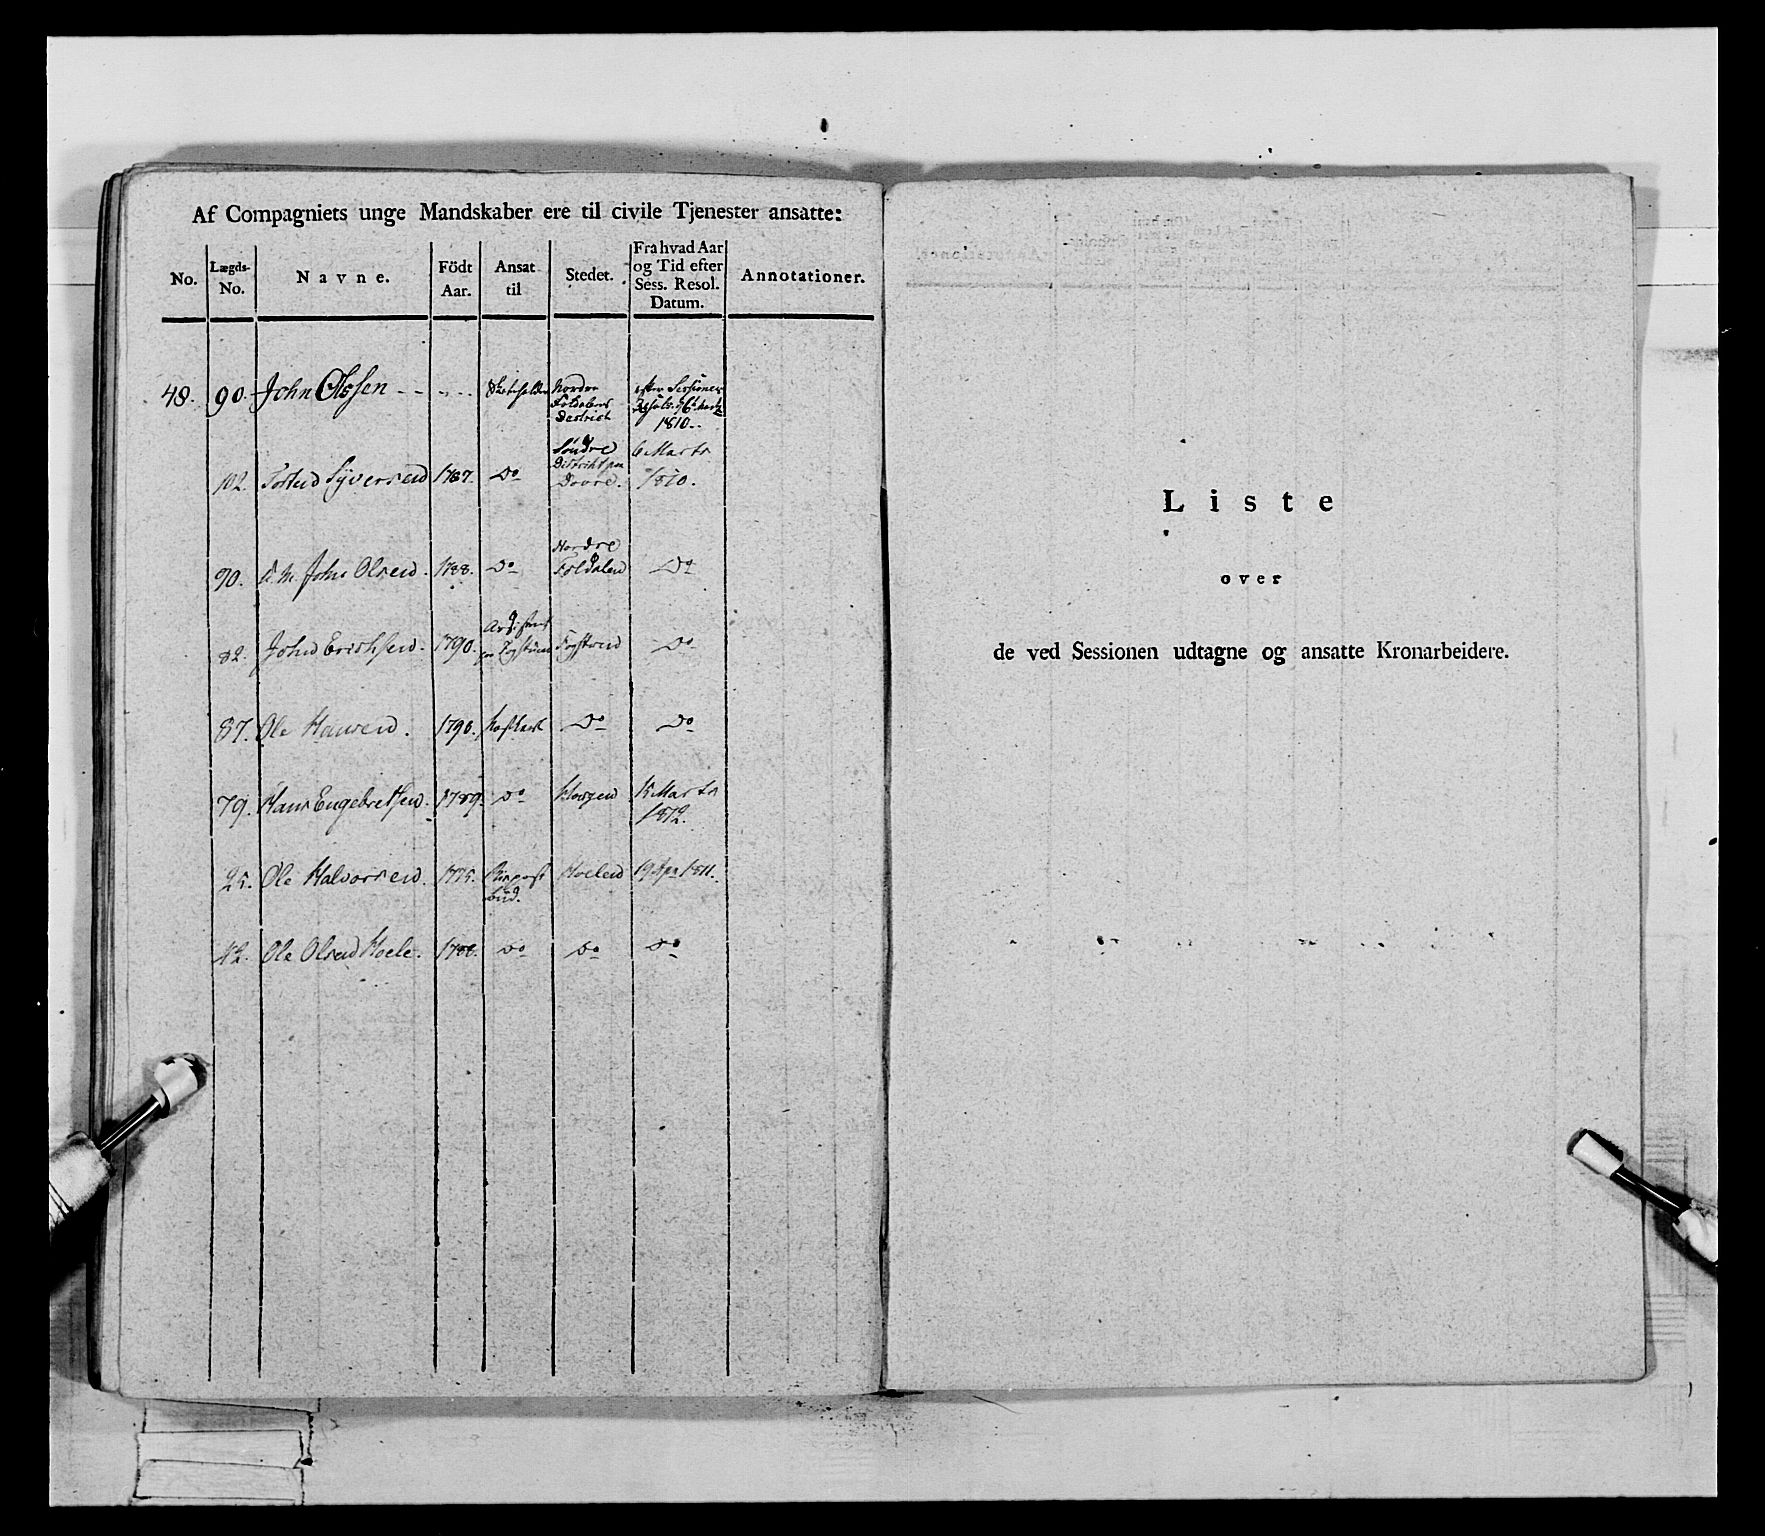 Af Compagniets unge Mandskaber ere til civile Tjenester ansatte:
No. Lægds-No. Navne. Födt Aar. Ansat til Stedet. Fra hvad Aar og Tid efter Sess. Resol. Datum. Annotationer.
48. 90. John Olssen - - - - - Nordre Foldalens Destrict efter Sessions Resol: 6 Marts 1810.
102. Syversen 1787. Do Søndre District paa Dovre. 6 Marts 1810.
90. John Olsen. 1788. Do Nordre Foldalen Do
82. John Erichsen. 1790. Fogstuen Do
87. Ole Hansen. 1790. Do Do
79. Hans Engebretsen. 1789. Do 15 Marts 1812.
25. Ole Halvorsen. 1775. bud. Hoelen 19 Apr 1811.
42. Ole Olsen Hoele. 1788. Do Do Do
Liste
over
de ved Sessionen udtagne og ansatte Kronarbeidere.